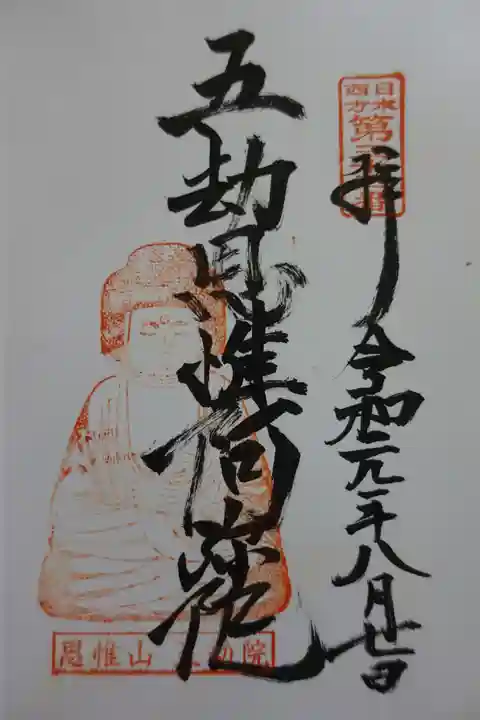 日本
西方
第
拝
令和元年八月廿日
五劫思惟阿弥陀
思惟山五劫院